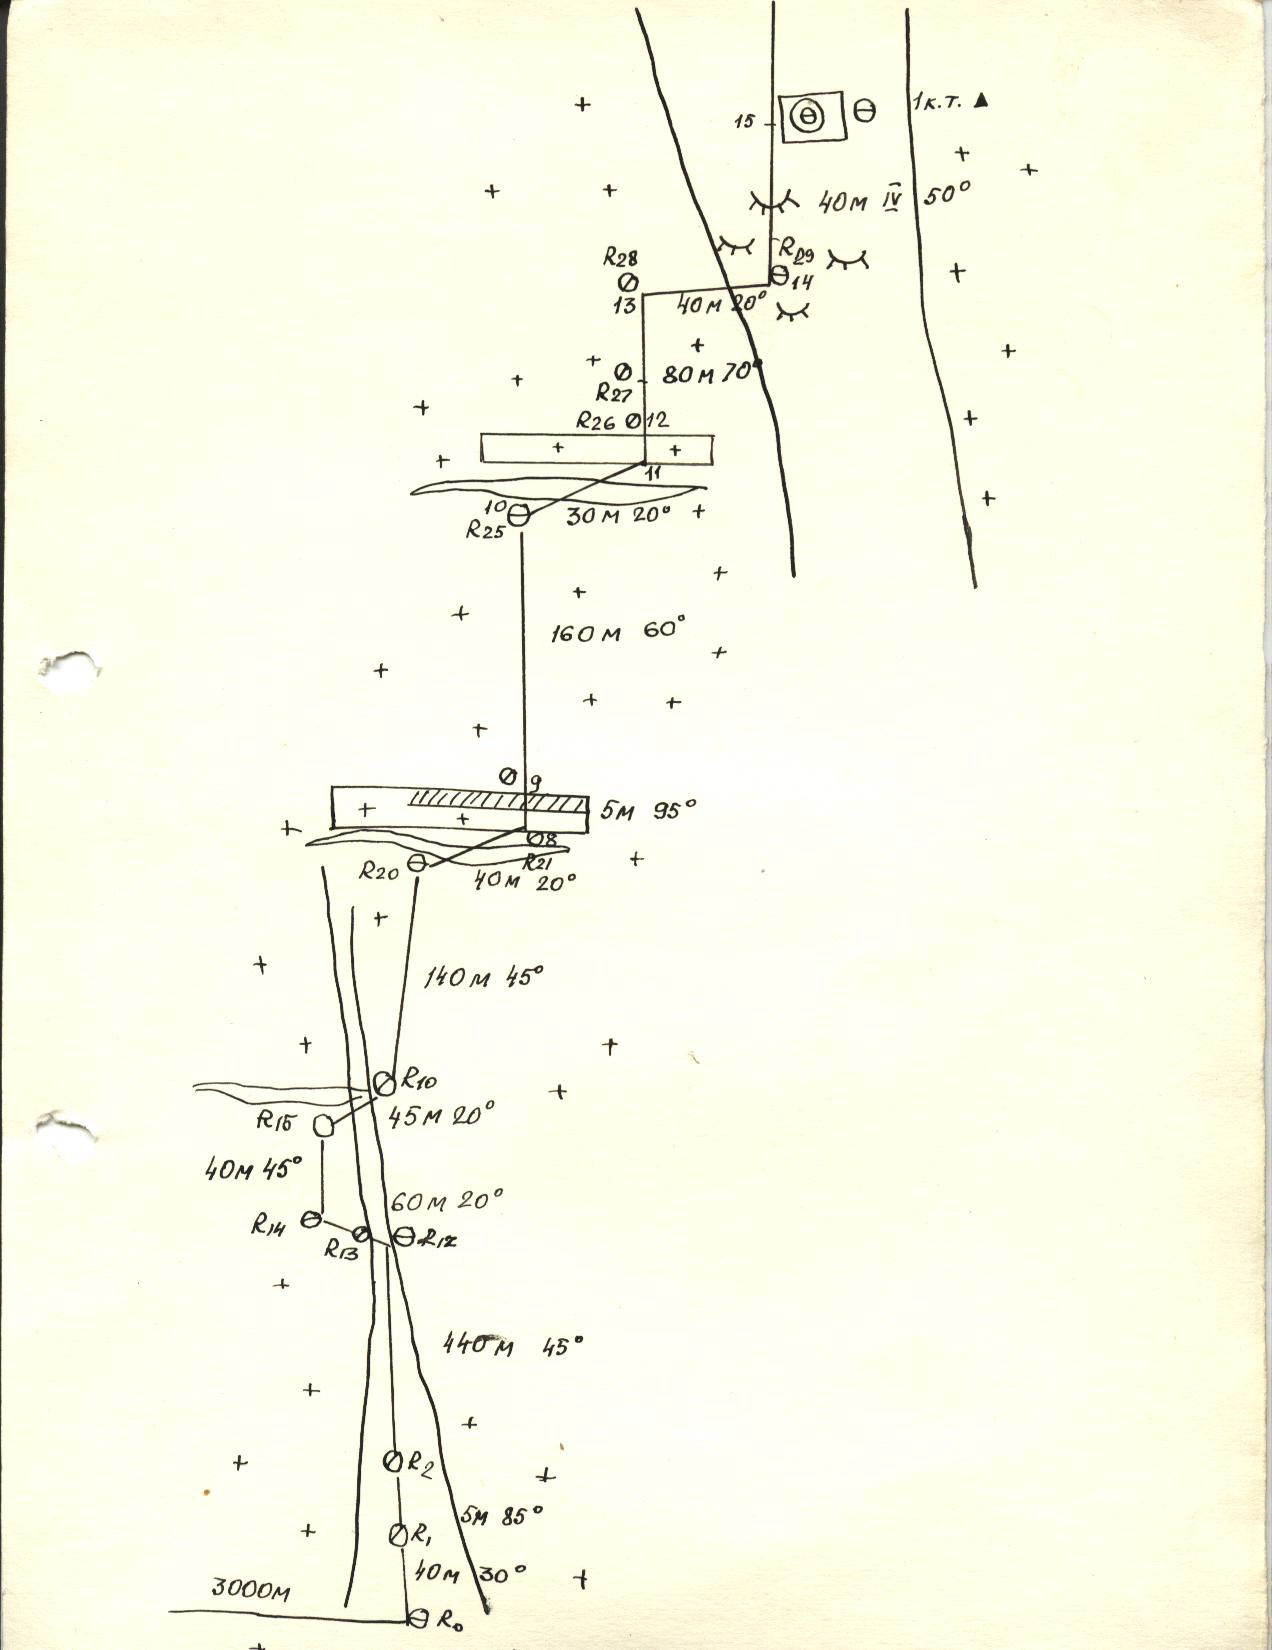 1к.т.
15
40м IV 50°
R28
R29
14
13
40м 20°
80м 70°
R27
R26 12
11
10
30м 20°
R25
160м 60°
9
5м 95°
8
R21
R20
40м 20°
140м 45°
R10
R15
45м 20°
40м 45°
60м 20°
R14
R13
R12
440м 45°
R2
5м 85°
R1
40м 30°
3000м
R0